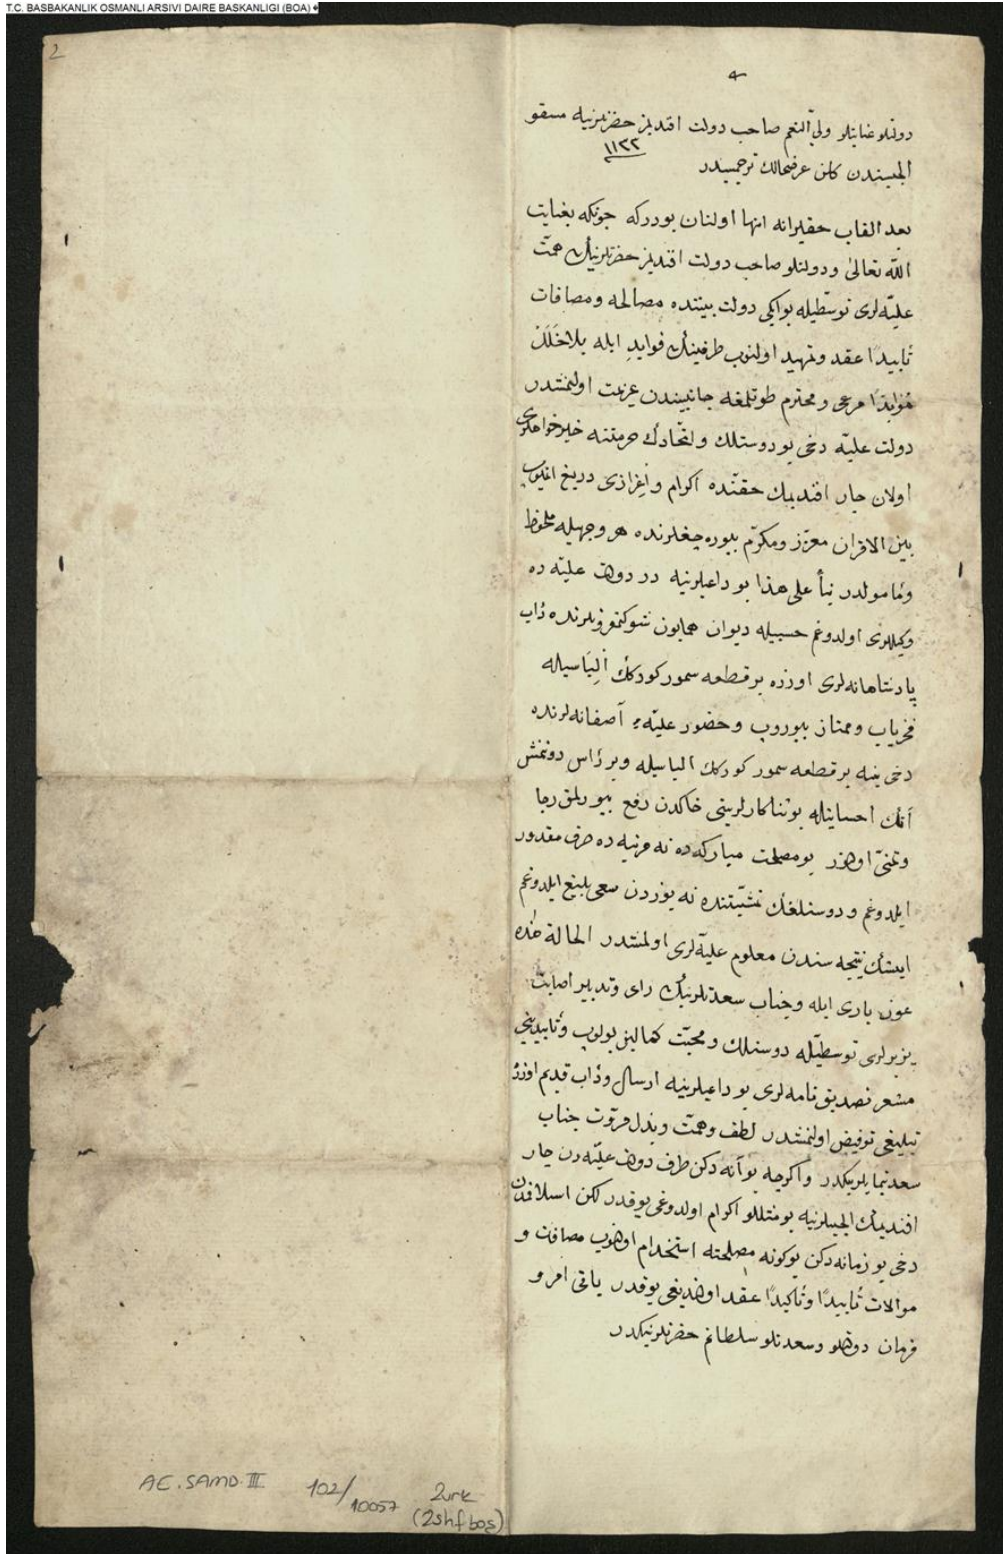 T.C. BASBAKANLIK OSMANLI ARSIVI DAIRE BASKANLIGI (BOA)
2
دولتلو عنايتلو ولي النعم صاحب دولت افنديمز حضرتلرينه مسقو
١١٢٢
ايلچيسندن كلن عرضحالك ترجمه سيدر
بعد القاب حقيرانه انها اولنان بودركه چونكه بعنايت
الله تعالى و دولتلو صاحب دولت افنديمز حضرتلرينك همت
عليه لرى توسطيله بو ايكى دولت بيننده مصالحه و مصافات
تأبيدًا عقد و تمهيد اولنوب طرفينك فوايد ايله بلا خلل
مؤبدًا مرعى و محترم طوتلمغه جانبيندن عزيمت اولنمشدر
دولت عليه دخى بو دوستلك و اتحادك حرمتنه خيرخواهلرى
اولان چار افنديمك حقنده اكرام و اعزازى دريغ اتميوب
بين الاقران معزز و مكرم بيوره جقلرنده هر وجهيله ملحوظ
و مأمولدر بنأ على هذا بو داعيلرينه در دولت عليه ده
وكيللرى اولدوغم حسبيله ديوان همايون شوكتمقرونلرنده دأب
پادشاهانه لرى اوزره بر قطعه سمور كورك الباسيله
فخرياب و ممتاز بيوروب و حضور عليه ء آصفانه لرنده
دخى ينه بر قطعه سمور كورك الباسيله و بر رأس دونمش
آتك احسانيله بو ثناكارلرينى خاكدن رفع بيورلمق رجا
و تمنى اولنور بو مصلحت مباركه ده نه مرتبه ده صرف مقدور
ايلدوغم و دوستلغك تمشيتنده نه يوزدن سعى بليغ ايلدوغم
ايشك نتيجه سندن معلوم عليه لرى اولمشدر الحالة هذه
عون بارى ايله و جناب سعادتلرينك راى و تدبير اصابت
پذيرلرى توسطيله دوستلك و محبت كمالين بولوب و تأبيدينى
مشعر تصديق نامه لرى بو داعيلرينه ارسال و دأب قديم اوزره
تبليغى تفويض اولنمشدر لطف و همت و بذل مروت جناب
سعادتمأبلرينكدر و اكرچه بو آنه دكن طرف دولت عليه دن چار
افنديمك ايلچيلرينه بو مثللو اكرام اولدوغى يوقدر لكن اسلافدن
دخى بو زمانه دكن بوكونه مصلحته استخدام اولنوب مصافات و
موالات تأبيدًا و تأكيدًا عقد اولنديغى يوقدر باقى امر و
فرمان دولتلو و سعادتلو سلطانم حضرتلرينكدر
AE.SAMD.III 102/10057 2vrk
(2shf boş)